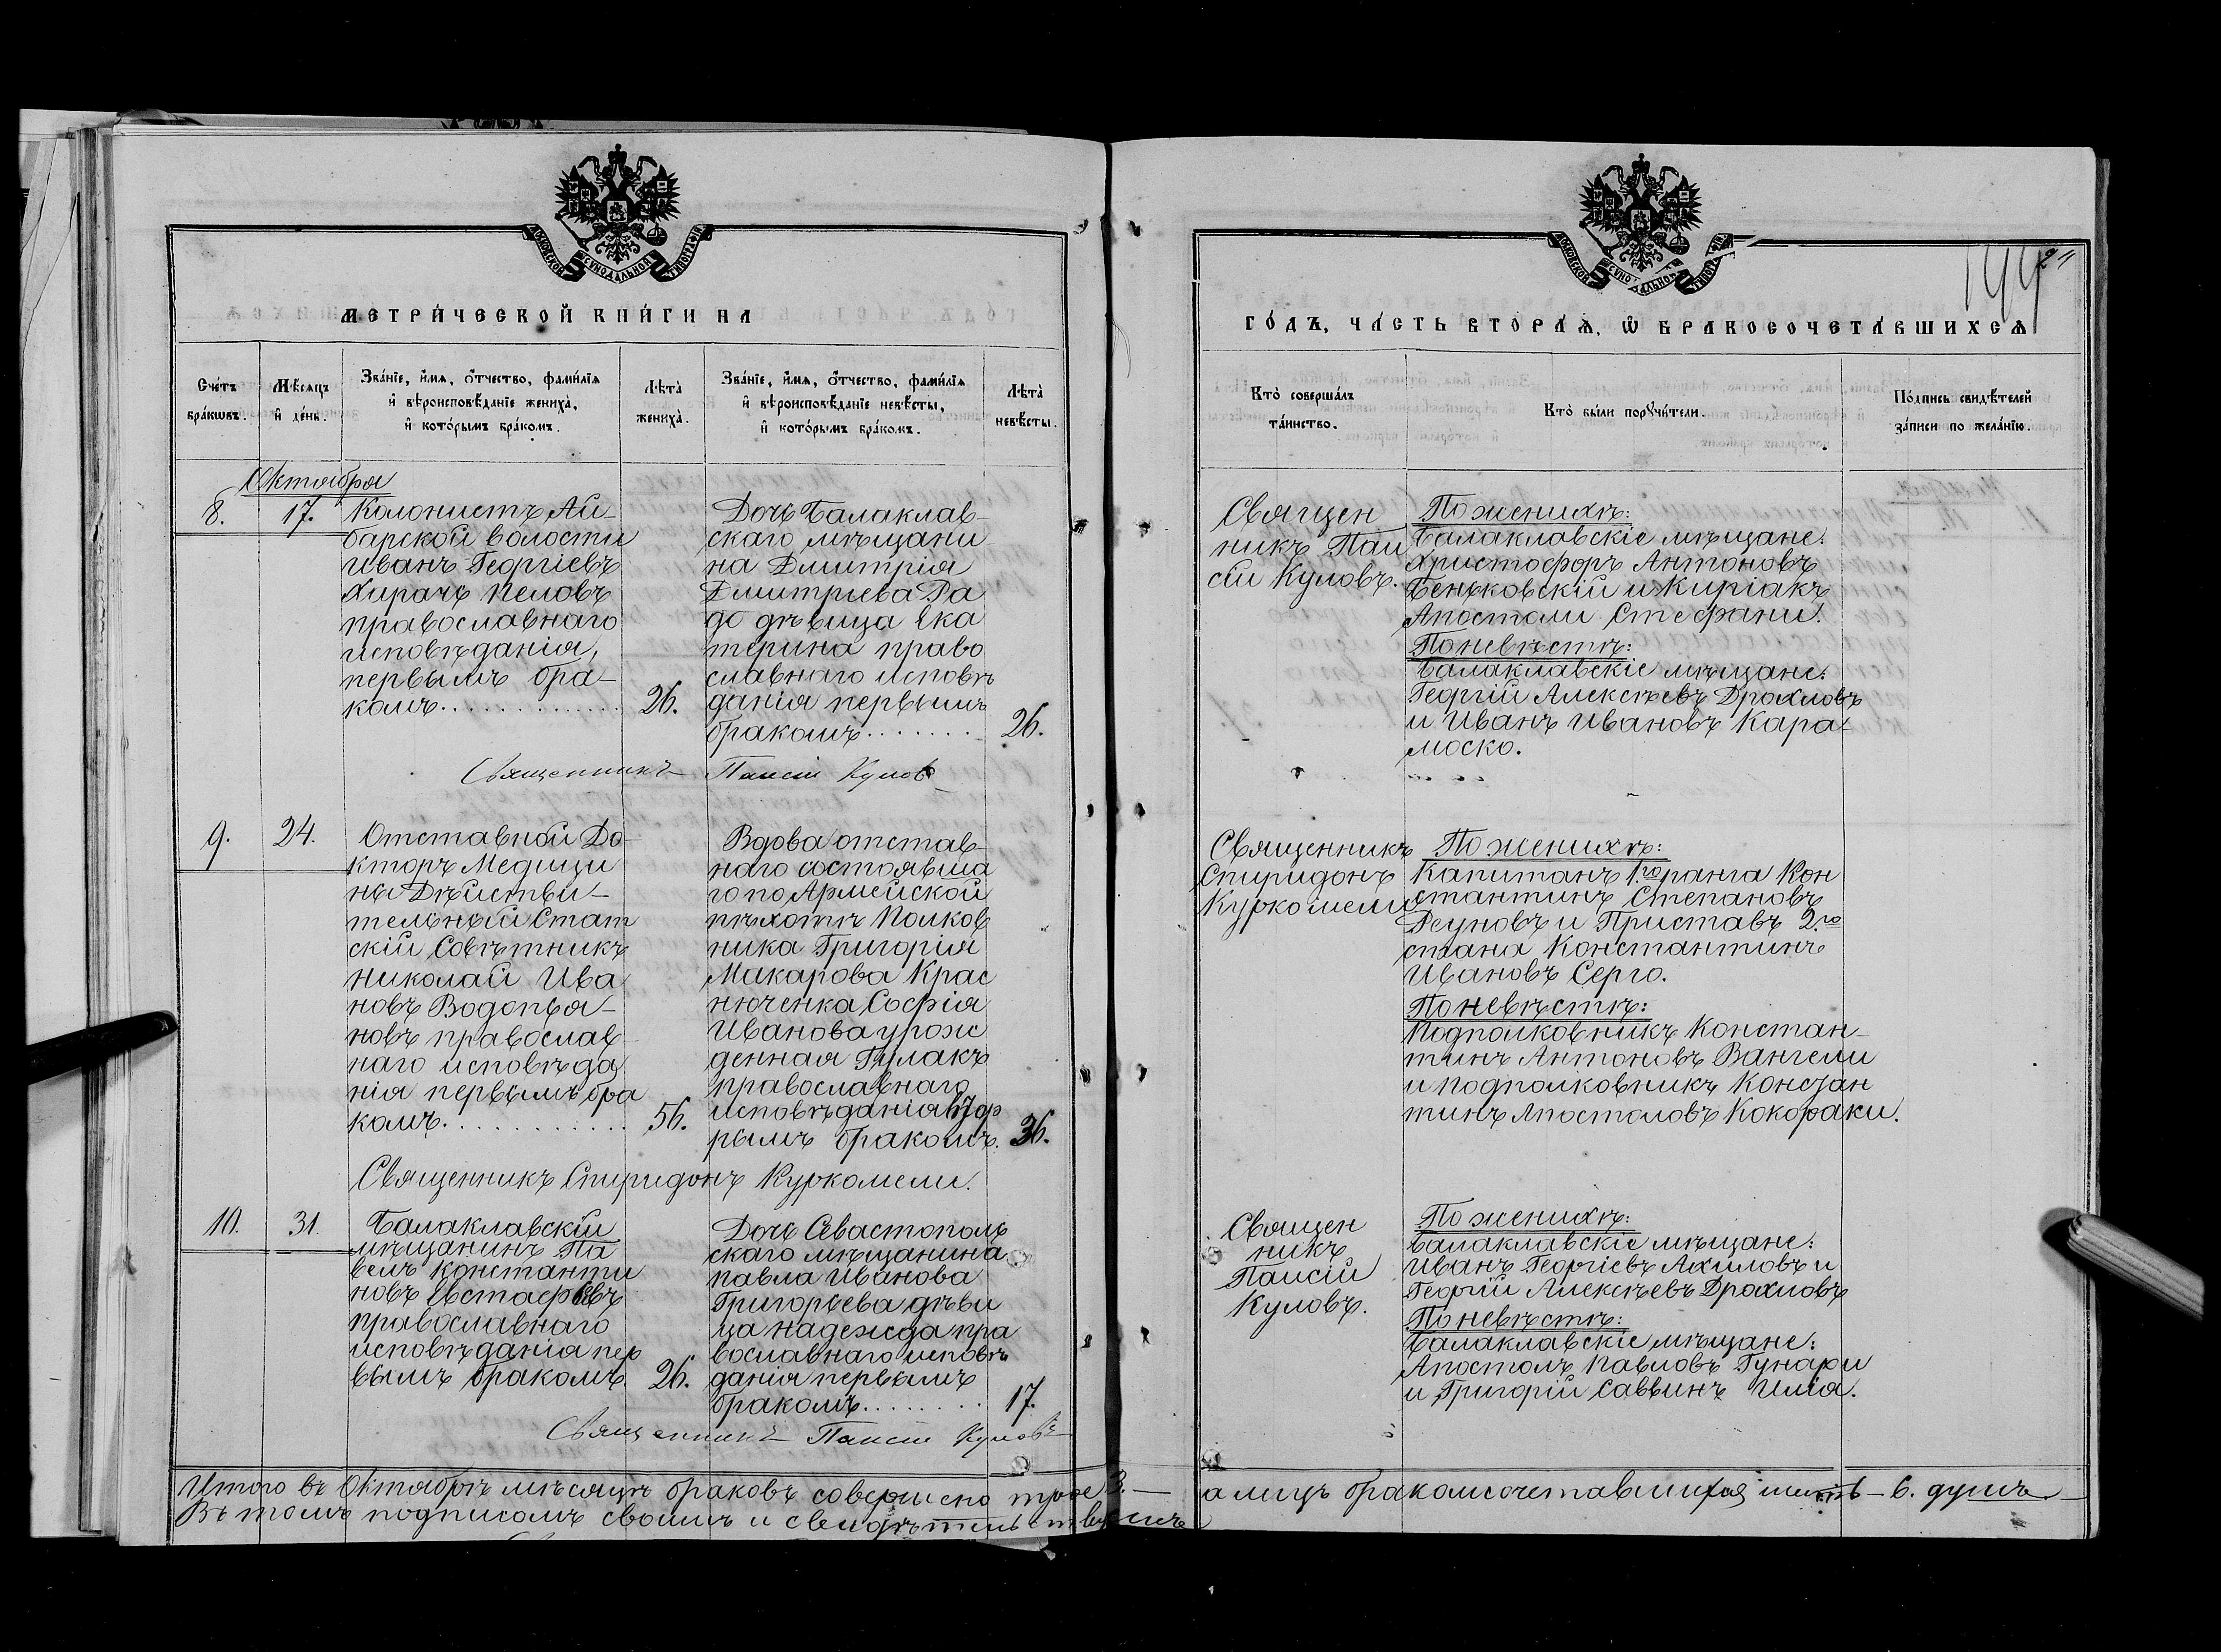 МОСКОВСКОЙ СѴНОДАЛЬНОЙ ТИПОГРАФІИ
МЕТРИ́ЧЕСКОЙ КНИ́ГИ НА
Сче́тъ бра́кѡвъ.
Мѣ́сяцъ и҆ де́нь.
Зва́нїе, и҆́мя, ѻ҆́тчество, фами́лїя
и҆ вѣроисповѣ́данїе жениха̀,
и҆ кото́рымъ бра́комъ.
Лѣта̀ жениха̀.
Зва́нїе, и҆́мя, ѻ҆́тчество, фами́лїя
и҆ вѣроисповѣ́данїе невѣ́сты,
и҆ кото́рымъ бра́комъ.
Лѣта̀ невѣ́сты.
Октября
8.
17.
Колонистъ Ай-
барской волости
Иванъ Георгіевъ
Хирачъ Пеловъ
православнаго
исповѣданія,
первымъ бра-
комъ.............
26.
Дочь Балаклав-
скаго мѣщани
на Димитрія
Димитріева Ра
до дѣвица Ека
терина право
славнаго исповѣ
данія первымъ
бракомъ.......
26.
Священникъ Паисій Куловъ
9.
24.
Отставной До-
кторъ Медици
ны Дѣйстви-
тельный Стат
скій Совѣтникъ
Николай Ива
новъ Водопья-
новъ православ-
наго исповѣда
нія первымъ бра
комъ............
56.
Вдова отстав-
наго состоявша
го по Армейской
пѣхотѣ Полков
ника Григорія
Макарова Крас
нюченка Софія
Иванова урож
денная Гулакъ
православнаго
исповѣданія вто
рымъ бракомъ.
36.
Священникъ Спиридонъ Куркомели.
10.
31.
Балаклавскій
мѣщанинъ Па
велъ Константи
новъ Евстафьевъ
православнаго
исповѣданія пер
вымъ бракомъ.
26.
Дочь Севастополь
скаго мѣщанина
Павла Иванова
Григорьева дѣви
ца Надежда пра
вославнаго исповѣ
данія первымъ
бракомъ........
17.
Священникъ Паисій Куловъ
Итого въ Октябрѣ мѣсяцѣ браковъ совершено трое 3.—
Въ томъ подписомъ своимъ и свидѣтельствуемъ
МОСКОВСКОЙ СѴНОДАЛЬНОЙ ТИПОГРАФІИ
ГО́ДЪ, ЧА́СТЬ ВТОРА́Я, Ѡ҆ БРАКОСОЧЕТА́ВШИХСЯ
Кто̀ соверша́лъ
та́инство.
Кто̀ бы́ли порꙋчи́тели.
По́дпись свидѣ́телей
за́писи по жела́нїю.
Священ
никъ Паи
сій Куловъ.
По женихѣ:
Балаклавскіе мѣщане:
Христофоръ Антоновъ
Беньковскій и Киріакъ
Апостоли Стефани.
По невѣстѣ:
Балаклавскіе мѣщане:
Георгій Алексѣевъ Драхловъ
и Иванъ Ивановъ Кара-
моско.
Священникъ
Спиридонъ
Куркомели
По женихѣ:
Капитанъ 1го ранга Кон
стантинъ Степановъ
Деуновъ и Приставъ 2го
стана Константинъ
Ивановъ Серго.
По невѣстѣ:
Подполковникъ Констан-
тинъ Антоновъ Вангели
и подполковникъ Констан
тинъ Апостоловъ Кокораки.
Священ
никъ
Паисій
Куловъ.
По женихѣ:
Балаклавскіе мѣщане:
Иванъ Георгіевъ Ахиловъ и
Георгій Алексѣевъ Драхловъ
По невѣстѣ:
Балаклавскіе мѣщане:
Апостолъ Павловъ Гунари
и Григорій Саввинъ Илія.
а лицъ бракомсочетавшихся шесть — 6. душъ